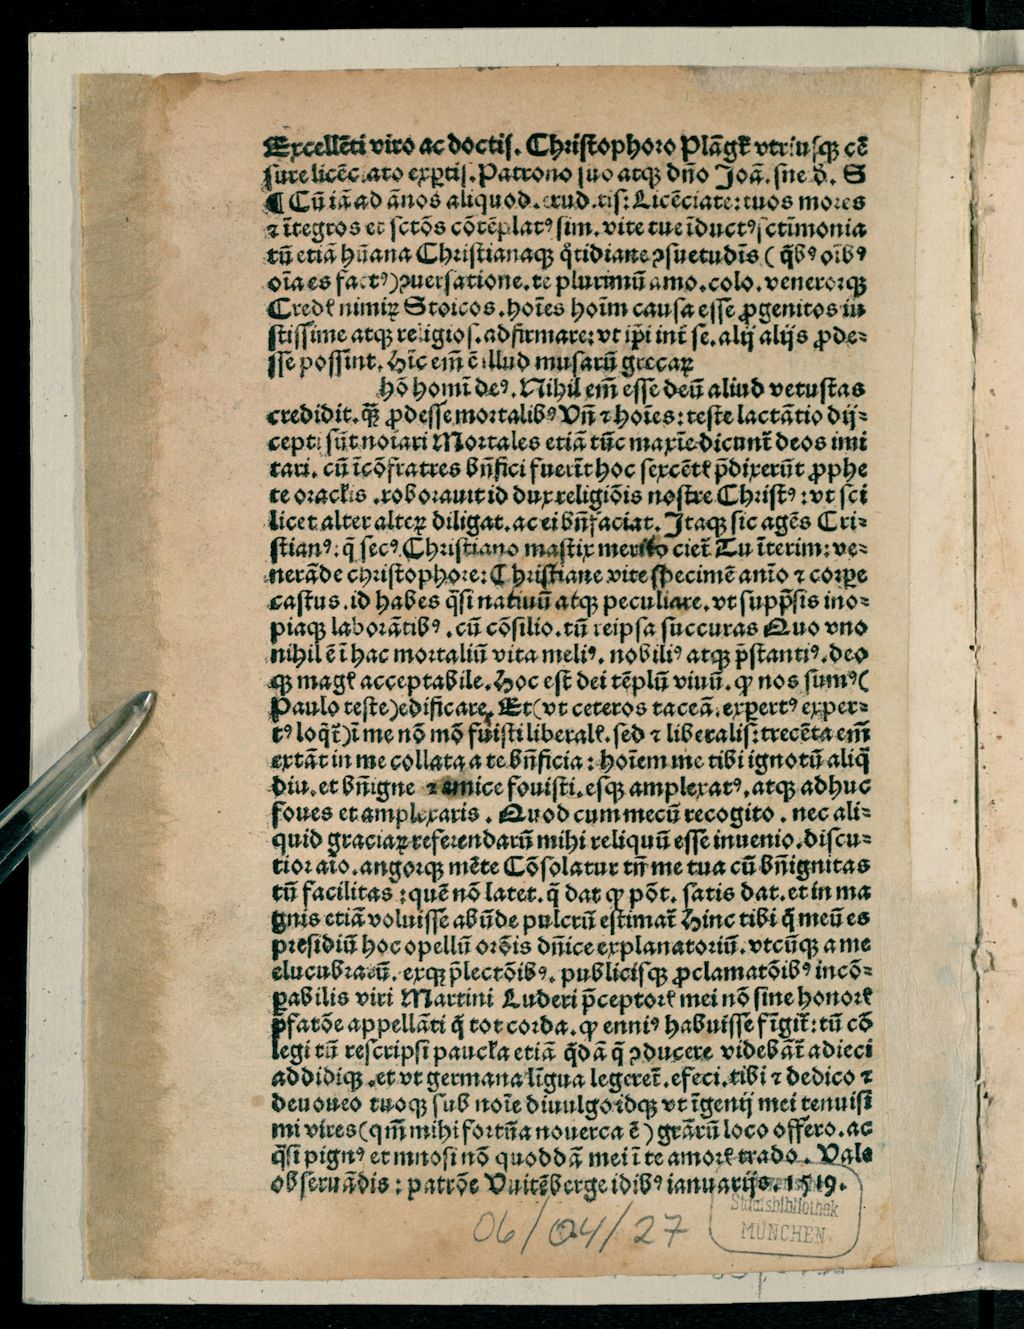 Excellēti viro ac doctis. Christophoro Plāgꝭ vtriusꝙ cē
sure licēciato exptis. Patrono suo atꝙ dño Joā. sne d. S
¶ Cū iā ad ānos aliquod. erud.tis: Licēciate: tuos mores
⁊ ītegros et sctōs cōtēplatꝰ sim. vite tue īductꝰ sctimonia
tū etiā hūana Christianaꝙ q̊tidiane ꝯsuetudīs ( q̄bꝰ oībꝰ
oīa es factꝰ) ꝯuersatione. te plurimū amo. colo. venerorꝙ
Credꝭ nimiꝝ Stoicos. hoīes hoīm causa esse ꝓgenitos iu
stissime atꝙ religios. adfirmare: vt ip̄i int̄ se. alij alijs ꝓde-
sse possint. Hīc em̄ ē illud musarū grecaꝝ
hō homī deꝰ. Nihil em̄ esse deū aliud vetustas
credidit. q̄ꝫ ꝓdesse mortalibꝰ Vñ ⁊ hoīes: teste lactātio dij-
cepti sūt noīari Mortales etiā tūc maxīe dicunt̄ deos imi
tari. cū ī cōfratres bn̄fici fuerīt hoc sexcētꝭ p̄dixerūt ꝓphe
te oraclis .roborauit id dux religiōis nostre Christꝰ : vt sci
licet alter alteꝝ diligat. ac ei bn̄faciat. Itaꝙ sic agēs Cri-
stianꝰ: q̄ secꝰ Christiano mastix merito ciet̄ Tu īterim: ve-
nerāde christophore: Christiane vite specimē anīo ⁊ corꝑe
castus. id habes q̄si natiuū atꝙ peculiare. vt supp̄sis ino-
piaꝙ laborātibꝰ. cū cōsilio. tū reipsa succuras Quo vno
nihil ē ī hac mortaliū vita meliꝰ. nobiliꝰ atꝙ p̄stantiꝰ. deo
ꝙ magꝭ acceptabile. Hoc est dei tēplū viuū. ꝙ nos sumꝰ(
Paulo teste)edificare. Et(vt ceteros taceā. expertꝰ exper-
tꝰ loq̄r̄)ī me nō mō fuisti liberalꝭ. sed ⁊ liberalis: trecēta em̄
extāt in me collata a te bn̄ficia: hoīem me tibi ignotū aliq̄
diu. et bn̄igne ⁊ amice fouisti. esꝙ amplexatꝰ. atꝙ adhuc
foues et amplexaris . Quod cum mecū recogito . nec ali-
quid graciaꝝ referendarū mihi reliquū esse inuenio. discu-
tior aīo. angorꝙ mēte Cōsolatur tn̄ me tua cū bn̄ignitas
tū facilitas : quē nō latet. q̄ dat ꝙ pōt. satis dat. et in ma
gnis etiā voluisse abūde pulcrū estimat̄ Hinc tibi q̄ meū es
presidiū hoc opellū orōis dn̄ice explanatoriū. vtcūꝙ a me
elucubratū. exꝙ p̄lectōibꝰ. publicisꝙ ꝓclamatōibꝰ incō-
ꝑabilis viri Martini Luderi p̄ceptorꝭ mei nō sine honorꝭ
p̄fatōe appellāti q̄ tot corda. ꝙ enniꝰ habuisse fīgit̄: tū cō
legi tū rescripsi paucla etiā q̄dā q̄ ꝯducere videbāt̄ adieci
addidiꝙ .et vt germana līgua legeret̄. efeci. tibi ⁊ dedico ⁊
deuoueo tuoꝙ sub noīe diuulgo idꝙ vt īgenij mei tenuisī
mi vires(qm̄ mihi fortūa nouerca ē ) grārū loco offero. ac
q̄si pignꝰ et mnosinō quoddā mei ī te amorꝭ trado . Vale
obseruādis : patrōe Vuitēberge idibꝰ ianuarijs. 1519.
06/04/27
Staatsbibliothek
MÜNCHEN